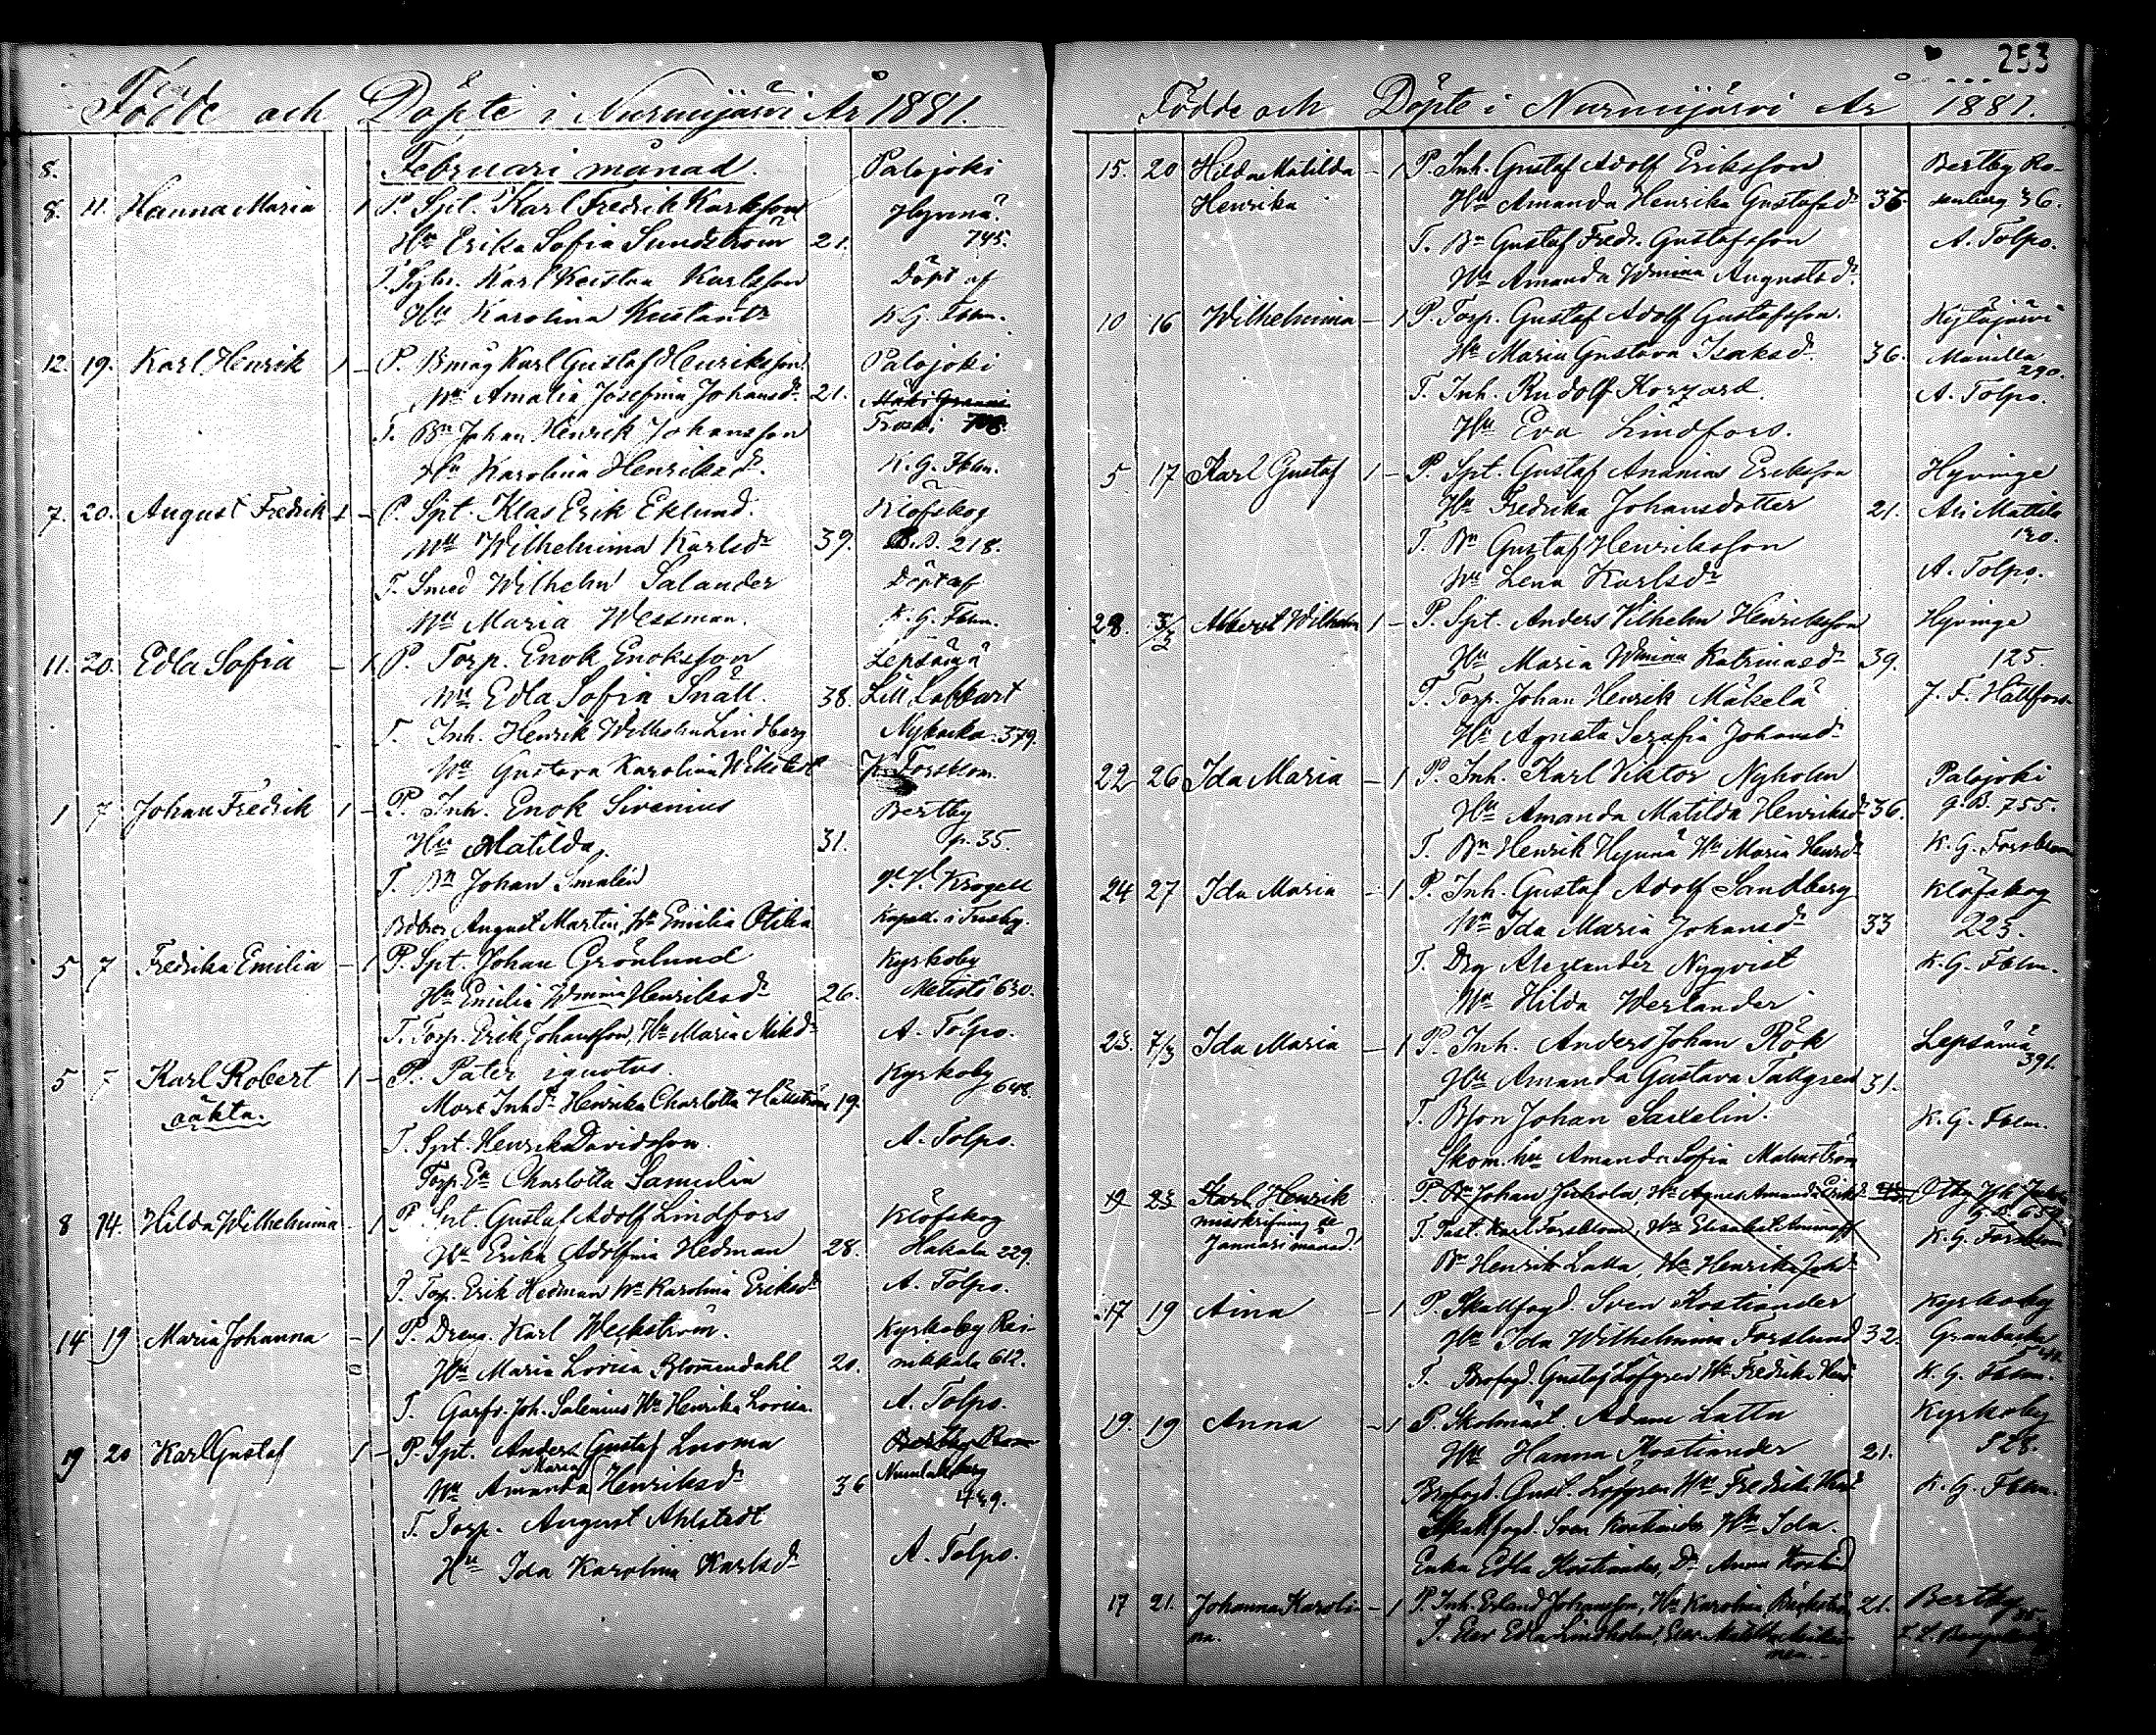 253
Födde och Döpte i Nurmijärvi År 1881.
Februari månad.
8. Palojoki
8. 11. Hanna Maria 1 P. Spt. Karl Fredrik Karlsson Hyvinä
Hu Erika Sofia Sundström 21. 745.
T. Karl Kustaa Karlsson Döpt af
Hu Karolina K. G. Fblm.
12. 19. Karl Henrik 1 – P. Bmåg Karl Gustaf Henriksson Palojoki
Hu Amalia Josefina Johansdr 21.
T. Bn Johan Henrik Johansson
Hu Karolina Henriksdr. K. G. Fblm.
7. 20. August Fredrik 1 – P. Spt. Klas Erik Eklund. Klöfskog
Hu Wilhelmina Karlsdr 39. 218.
T. Smed Wilhelm Salander Döpt af
Hu Maria Wessman. K. G. Fblm.
11. 20. Edla Sofia – 1 P. Torp. Enok Enoksson Lepsämä
Hu Edla Sofia Snäll. 38. Lill Lobbart
T. Inh. Henrik Wilhelm Lindberg Nybacka 379.
Hu Gustava Karolina Wikstedt K. Forsblom.
1 7 Johan Fredrik 1 – P. Inh. Enok Sirenius Bertby
Hu Matilda. 31. p. 35.
T. Bn Johan Smalén Krogell
August Martin, Hu Emilia Otilia Kapell. i Tusby.
5 7 Fredrika Emilia – 1 P. Spt. Johan Grönlund Kyrkoby
Hu Emilia Wmina Henriksdr 26. Metistö 630.
T. Torp. Erik Johansson, Hu Maria Miksdr A. Tolpo.
5 7 Karl Robert 1 – P. Pater ignotus. Kyrkoby
oäkta. Mor: Inhdr Henrika Charlotta Hällström 19. 648.
T. Spt. Henrik Davidsson. A. Tolpo.
Torp. En Charlotta Samulin
8 14. Hilda Wilhelmina – 1 P. Spt. Gustaf Adolf Lindfors Klöfskog
Hu Erika Adolfina Hedman 28. Hakala 229.
T. Torp. Erik Hedman Hu Karolina Eriksdr A. Tolpo.
14 19 Maria Johanna – 1 P. Dreng. Karl Weckström. Kyrkoby Rei-
Hu Maria Lovisa Blommendahl 20. nikkala 612.
T. Garfv. Joh. Salenius Hu Henrika Lovisa. A. Tolpo.
19 20 Karl Gustaf 1 – P. Spt. Anders Gustaf Luoma
Hu Amanda Maria Henriksdr 36 Numlahti
439.
T. Torp. August Ahlstedt
Hu Ida Karolina Karlsdr A. Tolpo.
Födde och Döpte i Nurmijärvi År 1881.
15. 20 Hilda Matilda – 1 P. Inh. Gustaf Adolf Eriksson Bertby Ro-
Henrika Hu Amanda Henrika Gustafsdr 36 senberg 36.
T. Bn Gustaf Fredr. Gustafsson A. Tolpo.
Hu Amanda Wmina Augustsdr
10 16 Wilhelmina – 1 P. Torp. Gustaf Adolf Gustafsson. Kytöjärvi
Hu Maria Gustava Isaksdr 36. Manilla
290.
T. Inh. Rudolf A. Tolpo.
Hu Eva Lindfors.
5 17 Karl Gustaf 1 – P. Spt. Gustaf Ananias Eriksson Hyvinge
Hu Fredrika Johansdotter 21. Ali Mattila
T. Bn Gustaf Henriksson 130.
Hu Lena Karlsdr A. Tolpo.
28. 3/3 Albert Wilhelm 1 – P. Spt. Anders Vilhelm Henriksson Hyvinge
Hu Maria Wmina 39. 125.
T. Torp. Johan Henrik Mäkelä J. F. Hällfors.
Hu Agnata Serafia Johansdr
22 26 Ida Maria – 1 P. Inh. Karl Viktor Nyholm Palojoki
Hu Amanda Matilda Henriksdr 36. g. B. 755.
T. Bn Henrik Hynnä Hu Maria Henrdr K. G. Forsblom
24 27 Ida Maria – 1 P. Inh. Gustaf Adolf Sandberg Klöfskog
Hu Ida Maria Johansdr 33 223.
T. Drg Alexander Nyqvist K. G. Fblm.
Hu Hilda Werlander
23. 7/3 Ida Maria – 1 P. Inh. Anders Johan Rök Lepsämä
Hu Amanda Gustava Tallgren 31. 391.
T. Bson Johan Saxelin. K. G. Fblm.
Skom. hu Amanda Sofia Malmström
19 23 Karl Henrik P. Bn Johan Jukola, Hu Agnes Amanda
misskrifning se T. Past. Karl Forsblom, Hu Elisabet Aminoff K. G. Forsblom
Januari månad. Bn Henrik Latta, Hu Henrika
17 19 Aina – 1 P. Skallfogd. Sven Kostiander Kyrkoby
Hu Ida Wilhelmina Forslund 32. Granbacka
T. Brofogd. Gustaf Löfgren Hu Fredrika K. G. Fblm.
19. 19 Anna – 1 P. Skolmäst. Adam Latta Kyrkoby
Hu Hanna Kostiander 21. 528.
Brofogd. Gust. Löfgren Hu Fredrika K. G. Fblm.
Skallfogd. Sven Kostiander Hu Ida.
Enka Edla Kostiander, Dr Anna
17 21. Johanna Karoli- – 1 P. Inh. Erland Johansson, Hu Karolina Bäckström 21. Bertby
na. T. Elev Edla Lindholm, Elev 35.